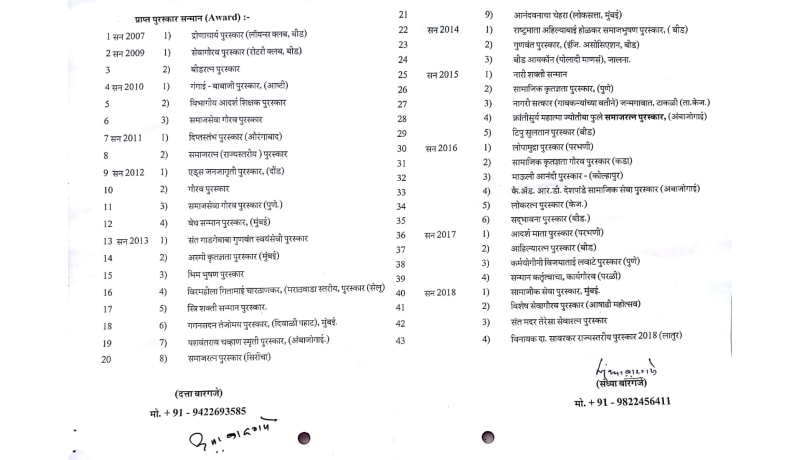 प्राप्त पुरस्कार सन्मान (Award) :-
1 सन 2007 1) द्रोणाचार्य पुरस्कार (लॉयन्स क्लब, बीड)
2 सन 2009 1) सेवागौरव पुरस्कार (रोटरी क्लब, बीड)
3 2) बीडरत्न पुरस्कार
4 सन 2010 1) गंगाई - बाबाजी पुरस्कार, (आष्टी)
5 2) विभागीय आदर्श शिक्षक पुरस्कार
6 3) समाजसेवा गौरव पुरस्कार
7 सन 2011 1) दिपस्तंभ पुरस्कार (औरंगाबाद)
8 2) समाजरत्न (राज्यस्तरीय ) पुरस्कार
9 सन 2012 1) एड्स जनजागृती पुरस्कार, (दौंड)
10 2) गौरव पुरस्कार
11 3) समाजसेवा गौरव पुरस्कार (पुणे.)
12 4) वेध सन्मान पुरस्कार, (मुंबई)
13 सन 2013 1) संत गाडगेबाबा गुणवंत स्वयंसेवी पुरस्कार
14 2) अस्मी कृतज्ञता पुरस्कार (मुंबई)
15 3) भिम भुषण पुरस्कार
16 4) विरमहीला गितामाई चारठाणकर, (मराठवाडा स्तरीय, पुरस्कार (सेलू)
17 5) स्त्रि शक्ती सन्मान पुरस्कार.
18 6) गगनसदन तेजोमय पुरस्कार, (दिवाळी पहाट), मुंबई.
19 7) यशवंतराव चव्हाण स्मृती पुरस्कार, (अंबाजोगाई.)
20 8) समाजरत्न पुरस्कार (सिरोंचा)
(दत्ता बारगजे)
मो. + 91 - 9422693585
21 9) आनंदवनाचा चेहरा (लोकसत्ता, मुंबई)
22 सन 2014 1) राष्ट्रमाता अहिल्याबाई होळकर समाजभुषण पुरस्कार, ( बीड)
23 2) गुणवंत पुरस्कार, (इंजि. असोसिएशन, बीड)
24 3) बीड आयकॉन (पोलादी माणसं), जालना.
25 सन 2015 1) नारी शक्ती सन्मान
26 2) सामाजिक कृतज्ञता पुरस्कार, (पुणे)
27 3) नागरी सत्कार (गावकऱ्यांच्या वतीने) जन्मगावात, टाकळी (ता.केज.)
28 4) क्रांतीसुर्य महात्मा ज्योतीबा फुले समाजरत्न पुरस्कार, (अंबाजोगाई)
29 5) टिपु सुलतान पुरस्कार (बीड)
30 सन 2016 1) लोपामुद्रा पुरस्कार (परभणी)
31 2) सामाजिक कृतज्ञता गौरव पुरस्कार (कडा)
32 3) माऊली आनंदी पुरस्कार - (कोल्हापुर)
33 4) कै.ॲड. आर.डी. देशपांडे सामाजिक सेवा पुरस्कार (अंबाजोगाई)
34 5) लोकरत्न पुरस्कार (केज.)
35 6) सद्‌भावना पुरस्कार (बीड.)
36 सन 2017 1) आदर्श माता पुरस्कार (परभणी)
37 2) आहिल्यारत्न पुरस्कार (बीड)
38 3) कर्मयोगीनी विजयाताई लवाटे पुरस्कार (पुणे)
39 4) सन्मान कर्तृत्वाचा, कार्यगौरव (परळी)
40 सन 2018 1) सामाजीक सेवा पुरस्कार, मुंबई.
41 2) विशेष सेवागौरव पुरस्कार (आषाढी महोत्सव)
42 3) संत मदर तेरेसा सेवारत्न पुरस्कार
43 4) विनायक दा. सावरकर राज्यस्तरीय पुरस्कार 2018 (लातुर)
(संध्या बारगजे)
मो. + 91 - 9822456411